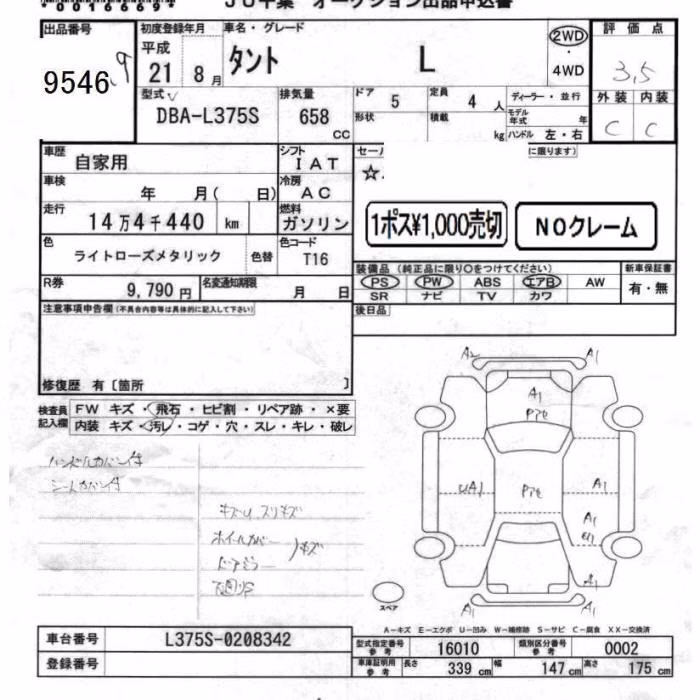 JU千葉 オークション出品申込書
*0016669*
出品番号
9546
初度登録年月
平成
21年 8月
車名・グレード
タント L
2WD
・
4WD
評価点
3,5
外装 内装
C C
型式
DBA-L375S
排気量
658 cc
ドア 5 定員 4 人
形状 積載 kg
ディーラー・並行
モデル年式 年
ハンドル 左・右
車歴 自家用
シフト IAT
セー に限ります)
☆
車検 年 月( 日)
冷房 AC
走行 14万4千440 km
燃料 ガソリン
1ポス¥1,000売切 NOクレーム
色 ライトローズメタリック 色替
色コード T16
R券 9,790円
名変通知期限 月 日
装備品 (純正品に限り○をつけてください)
PS PW ABS エアB AW
SR ナビ TV カワ
新車保証書
有・無
注意事項申告欄(不具合内容等は具体的に記入して下さい)
後日品
修復歴 有〔箇所 〕
検査員記入欄
FW キズ・飛石・ヒビ割・リペア跡・×要
内装 キズ・汚レ・コゲ・穴・スレ・キレ・破レ
ハンドルカバー付
シートカバー付
キズU スリキズ
ホイルカバー
ドアミラー
キズ
下廻りS
A2 A1
A1
Pアセ
UA1 Pアセ A1
A1
A1
A1 A1
スペア
A-キズ E-エクボ U-凹み W-補修跡 S-サビ C-腐食 XX-交換済
車台番号 L375S-0208342
登録番号
型式指定番号 参考 16010 類別区分番号 参考 0002
車庫証明用 参考 長さ 339 cm 幅 147 cm 高さ 175 cm